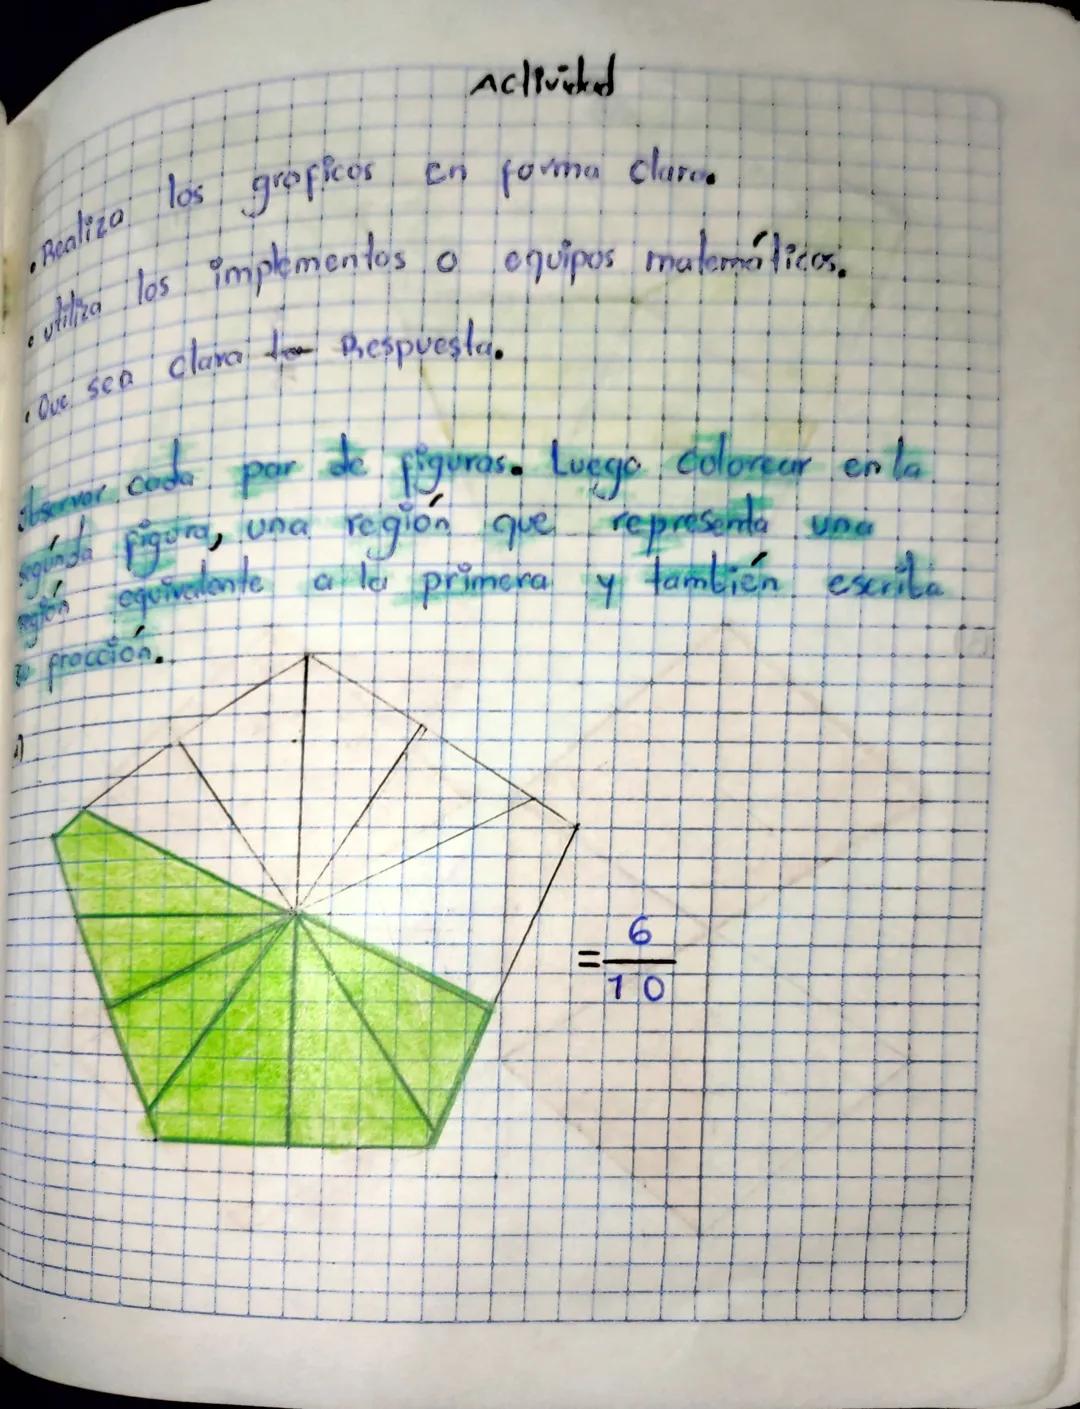 Actividad
• Realiza los gráficos en forma clara.
• utiliza los implementos o equipos matemáticos.
• Que sea clara la Respuesta.
observar cada par de figuras. Luego colorear en la
segúnda figura, una región que representa una
región equivalente a la primera y también escriba
fracción.
= 6
10